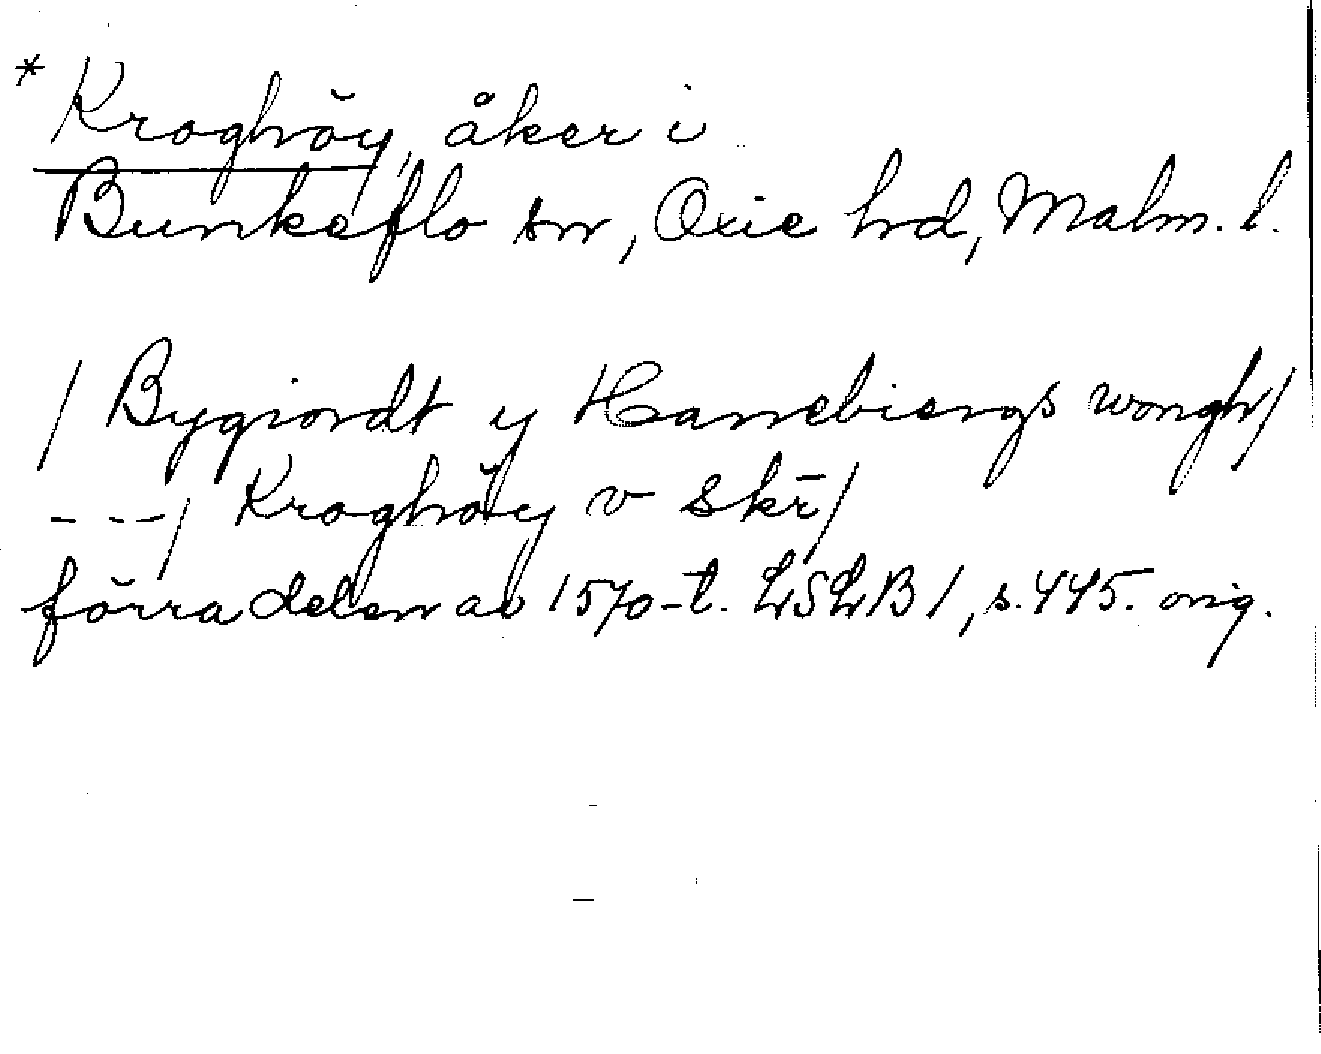 * Kroghöy, åker i
Bunkeflo sn, Oxie hd, Malm. l.
/ Bygiordt y Hanebiergs wongh/
- - -/ Kroghöy v skr̄/
förra delen av 1570-t. LSLB 1, s. 445. orig.